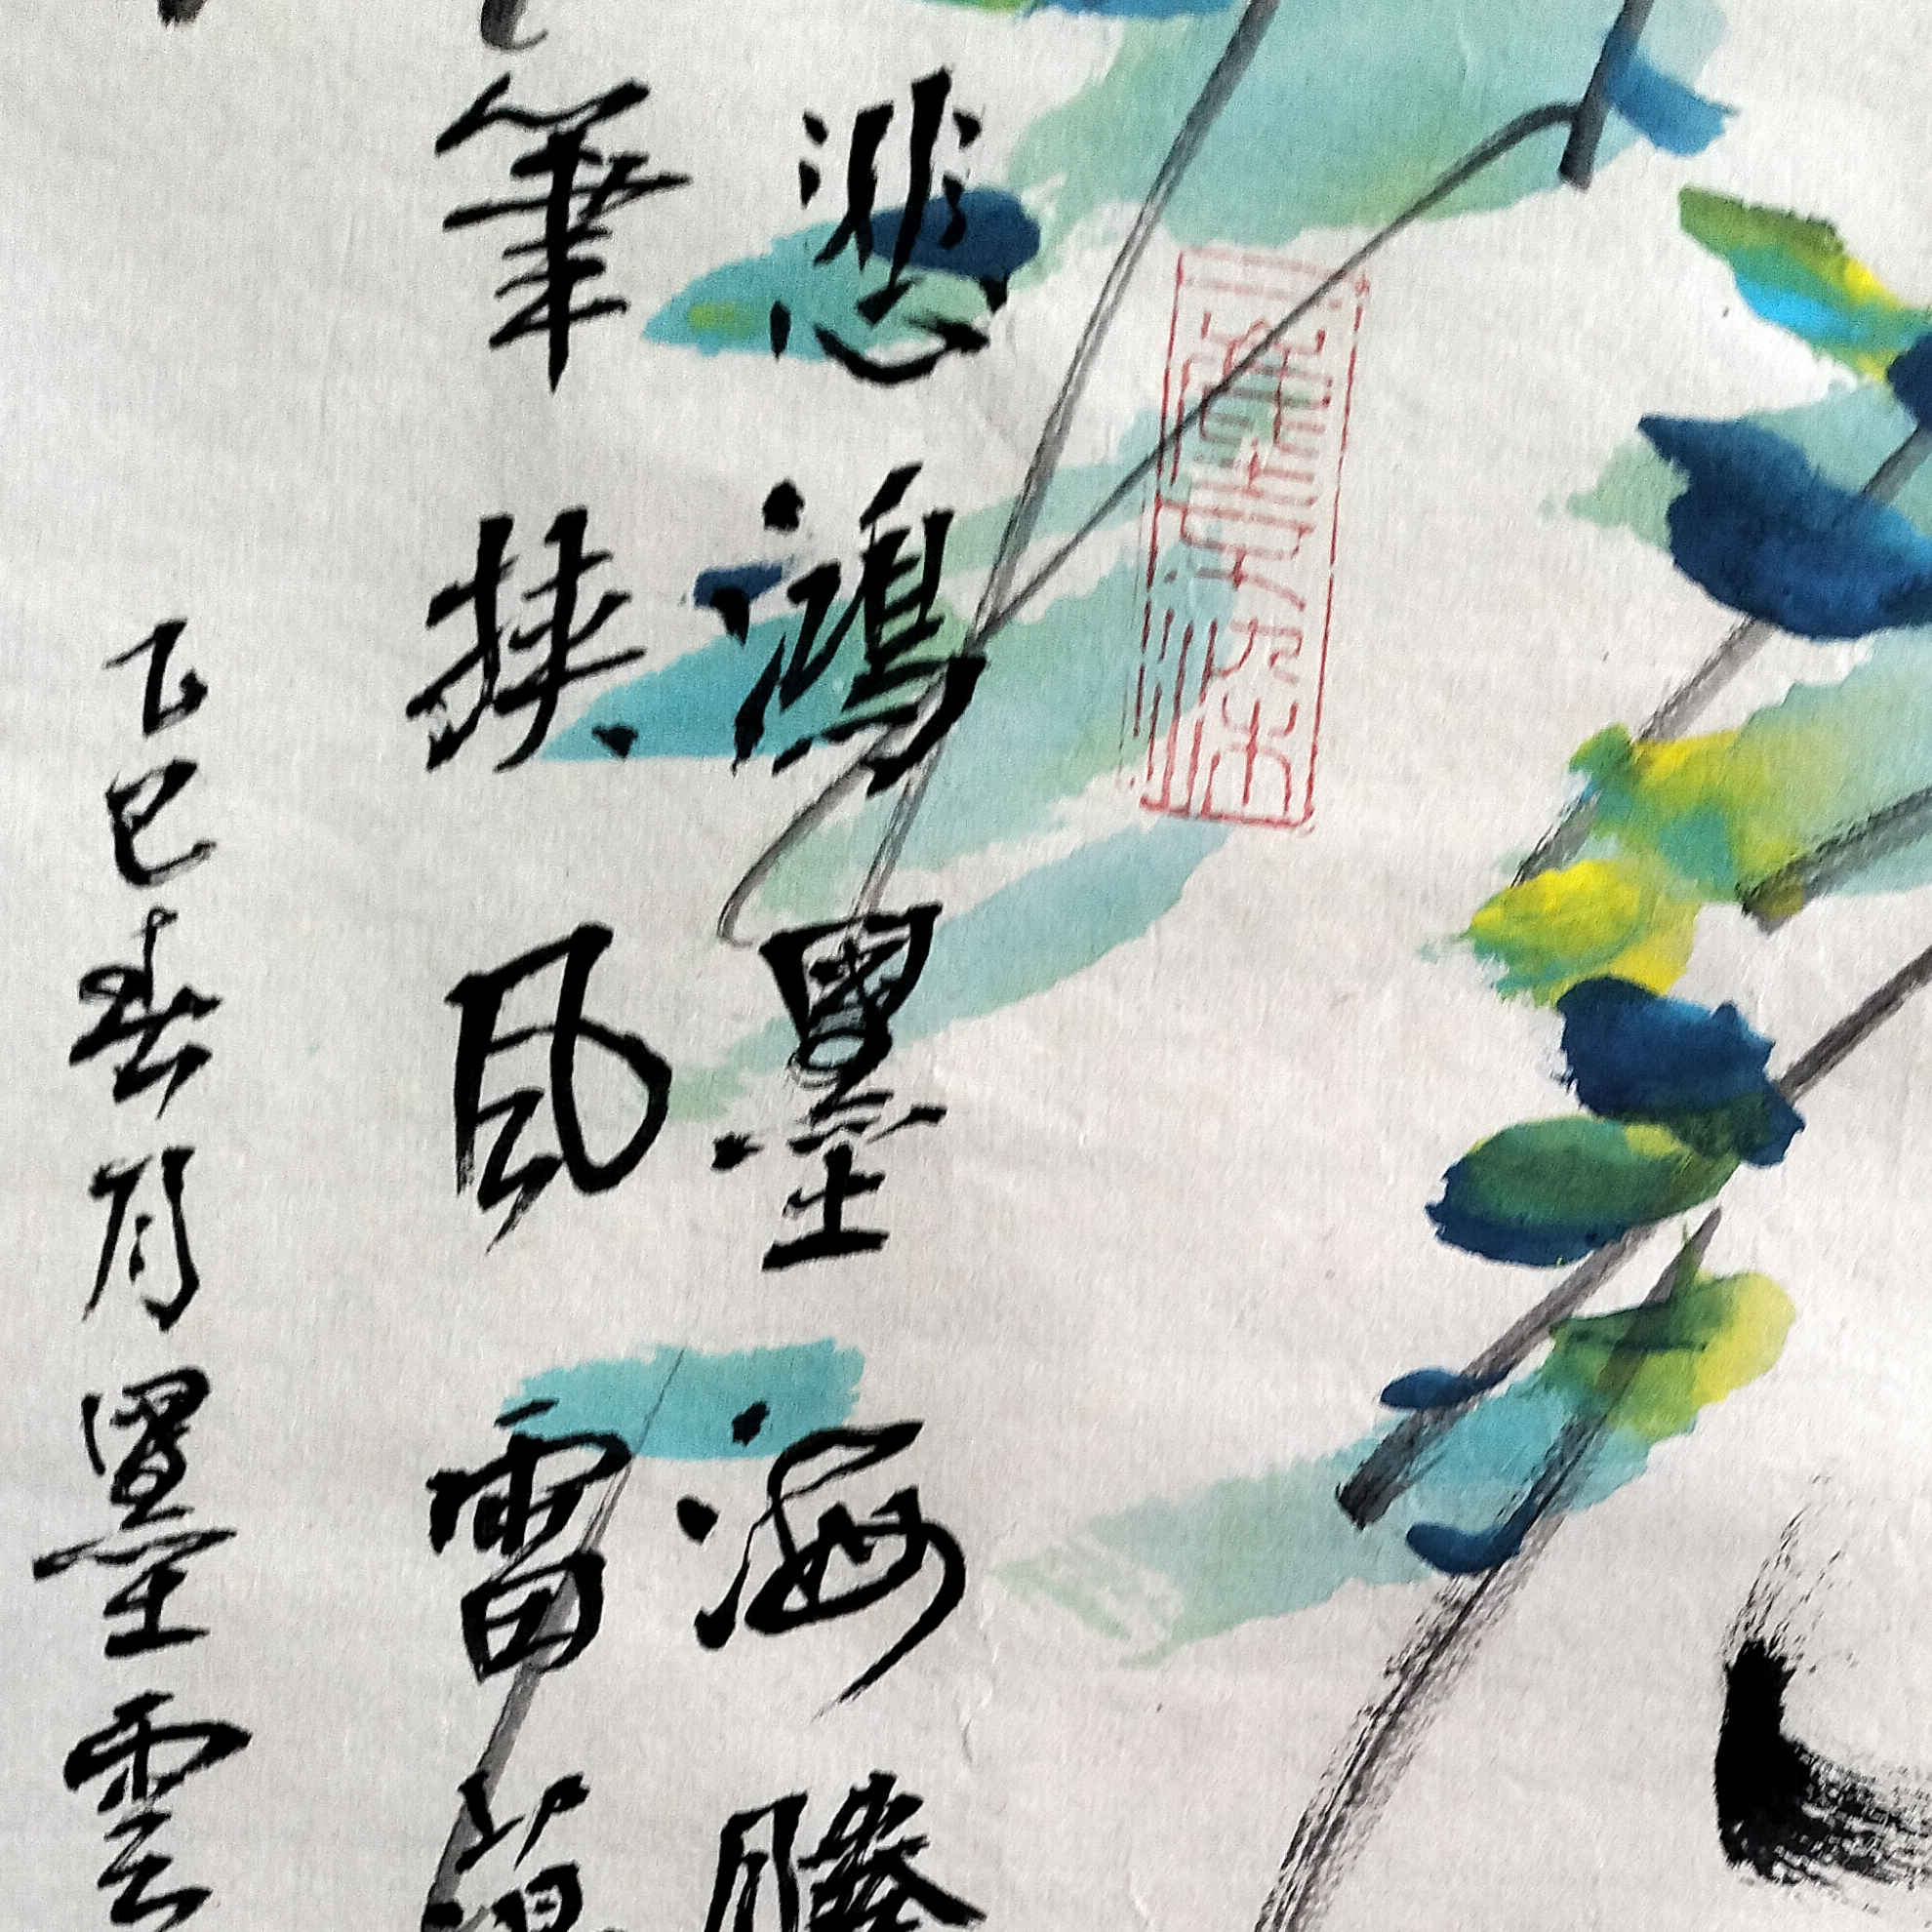 悲鴻墨海騰
筆挾風雷
乙巳春月墨雲